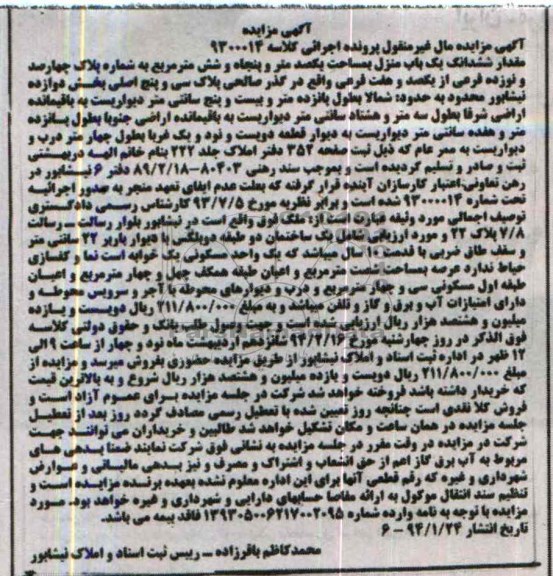 آگهی مزایده
آگهی مزایده مال غیرمنقول پرونده اجرائی کلاسه ۹۳۰۰۰۱۴
مقدار ششدانگ یک باب منزل بمساحت یکصد متر و پنجاه و شش مترمربع به شماره پلاک چهارصد
و نوزده فرعی از یکصد و هفت فرعی واقع در گذر صالحی پلاک سی و پنج اصلی بخش دوازده
نیشابور محدود به حدود: شمالا بطول پانزده متر و بیست و پنج سانتی متر دیواریست به باقیمانده
اراضی شرقا بطول سه متر و هشتاد سانتی متر دیواریست به باقیمانده اراضی جنوبا بطول پانزده
متر و هفده سانتی متر دیواریست به دیوار قطعه دویست و نود و یک غربا بطول چهار متر درب و
دیواریست به ممر عام که ذیل ثبت صفحه ۳۵۲ دفتر املاک جلد ۲۲۲ بنام خانم الهه
ثبت و صادر و تسلیم گردیده است و بموجب سند رهنی ۸۰۴۰۳-۸۹/۲/۱۸ دفتر ۶ نیشابور در
رهن تعاونی اعتبار کارسازان آینده قرار گرفته که بعلت عدم ایفای تعهد منجر به صدور اجرائیه
تحت شماره ۹۳۰۰۰۱۴ شده است و برابر نظریه مورخ ۹۳/۷/۵ کارشناس رسمی دادگستری
توصیف اجمالی مورد وثیقه عبارتست از: ملک فوق واقع است در نیشابور بلوار رسالت ـ رسالت
۷/۸ پلاک ۲۲ و مورد ارزیابی شامل یک ساختمان دو طبقه دوبلکس با دیوار باربر ۲۲ سانتی متر
و سقف طاق ضربی با قدمت سال میباشد که یک واحد مسکونی یک خوابه است نما و کفسازی
حیاط ندارد عرصه بمساحت شصت مترمربع و اعیان طبقه همکف چهل و چهار مترمربع و اعیان
طبقه اول مسکونی سی و چهار مترمربع و درب و دیوارهای محوطه با آجر و سرویس محوطه و
دارای امتیازات آب و برق و گاز و تلفن میباشد و به مبلغ ۲۱۱/۸۰۰/۰۰۰ ریال دویست و یازده
میلیون و هشتصد هزار ریال ارزیابی شده است و جهت وصول طلب بانک و حقوق دولتی کلاسه
فوق الذکر در روز چهارشنبه مورخ ۹۴/۲/۱۶ شانزدهم اردیبهشت ماه نود و چهار از ساعت ۹ الی
۱۲ ظهر در اداره ثبت اسناد و املاک نیشابور از طریق مزایده حضوری بفروش میرسد و مزایده از
مبلغ ۲۱۱/۸۰۰/۰۰۰ ریال دویست و یازده میلیون و هشتصد هزار ریال شروع و به بالاترین قیمت
که خریدار داشته باشد فروخته خواهد شد شرکت در جلسه مزایده برای عموم آزاد است و
فروش کلا نقدی است چنانچه روز تعیین شده با تعطیل رسمی مصادف گردد روز بعد از تعطیل
جلسه مزایده در همان ساعت و مکان تشکیل خواهد شد طالبین و خریداران می توانند جهت
شرکت در مزایده در وقت مقرر در جلسه مزایده به نشانی فوق شرکت نمایند ضمنا بدهی های
مربوط به آب برق گاز اعم از حق انشعاب و اشتراک و مصرف و نیز بدهی مالیاتی و عوارض
شهرداری و غیره که رقم قطعی آنها برای این اداره معلوم نشده بعهده برنده مزایده است و
تنظیم سند انتقال موکول به ارائه مفاصا حسابهای دارایی و شهرداری و غیره خواهد بود. مورد
مزایده با توجه به نامه وارده شماره ۱۳۹۳۰۵۰۰۶۲۱۷۰۰۲۰۹۵ فاقد بیمه می باشد.
تاریخ انتشار ۹۴/۱/۲۴ - ۶
محمدکاظم باقرزاده ـ رییس ثبت اسناد و املاک نیشابور